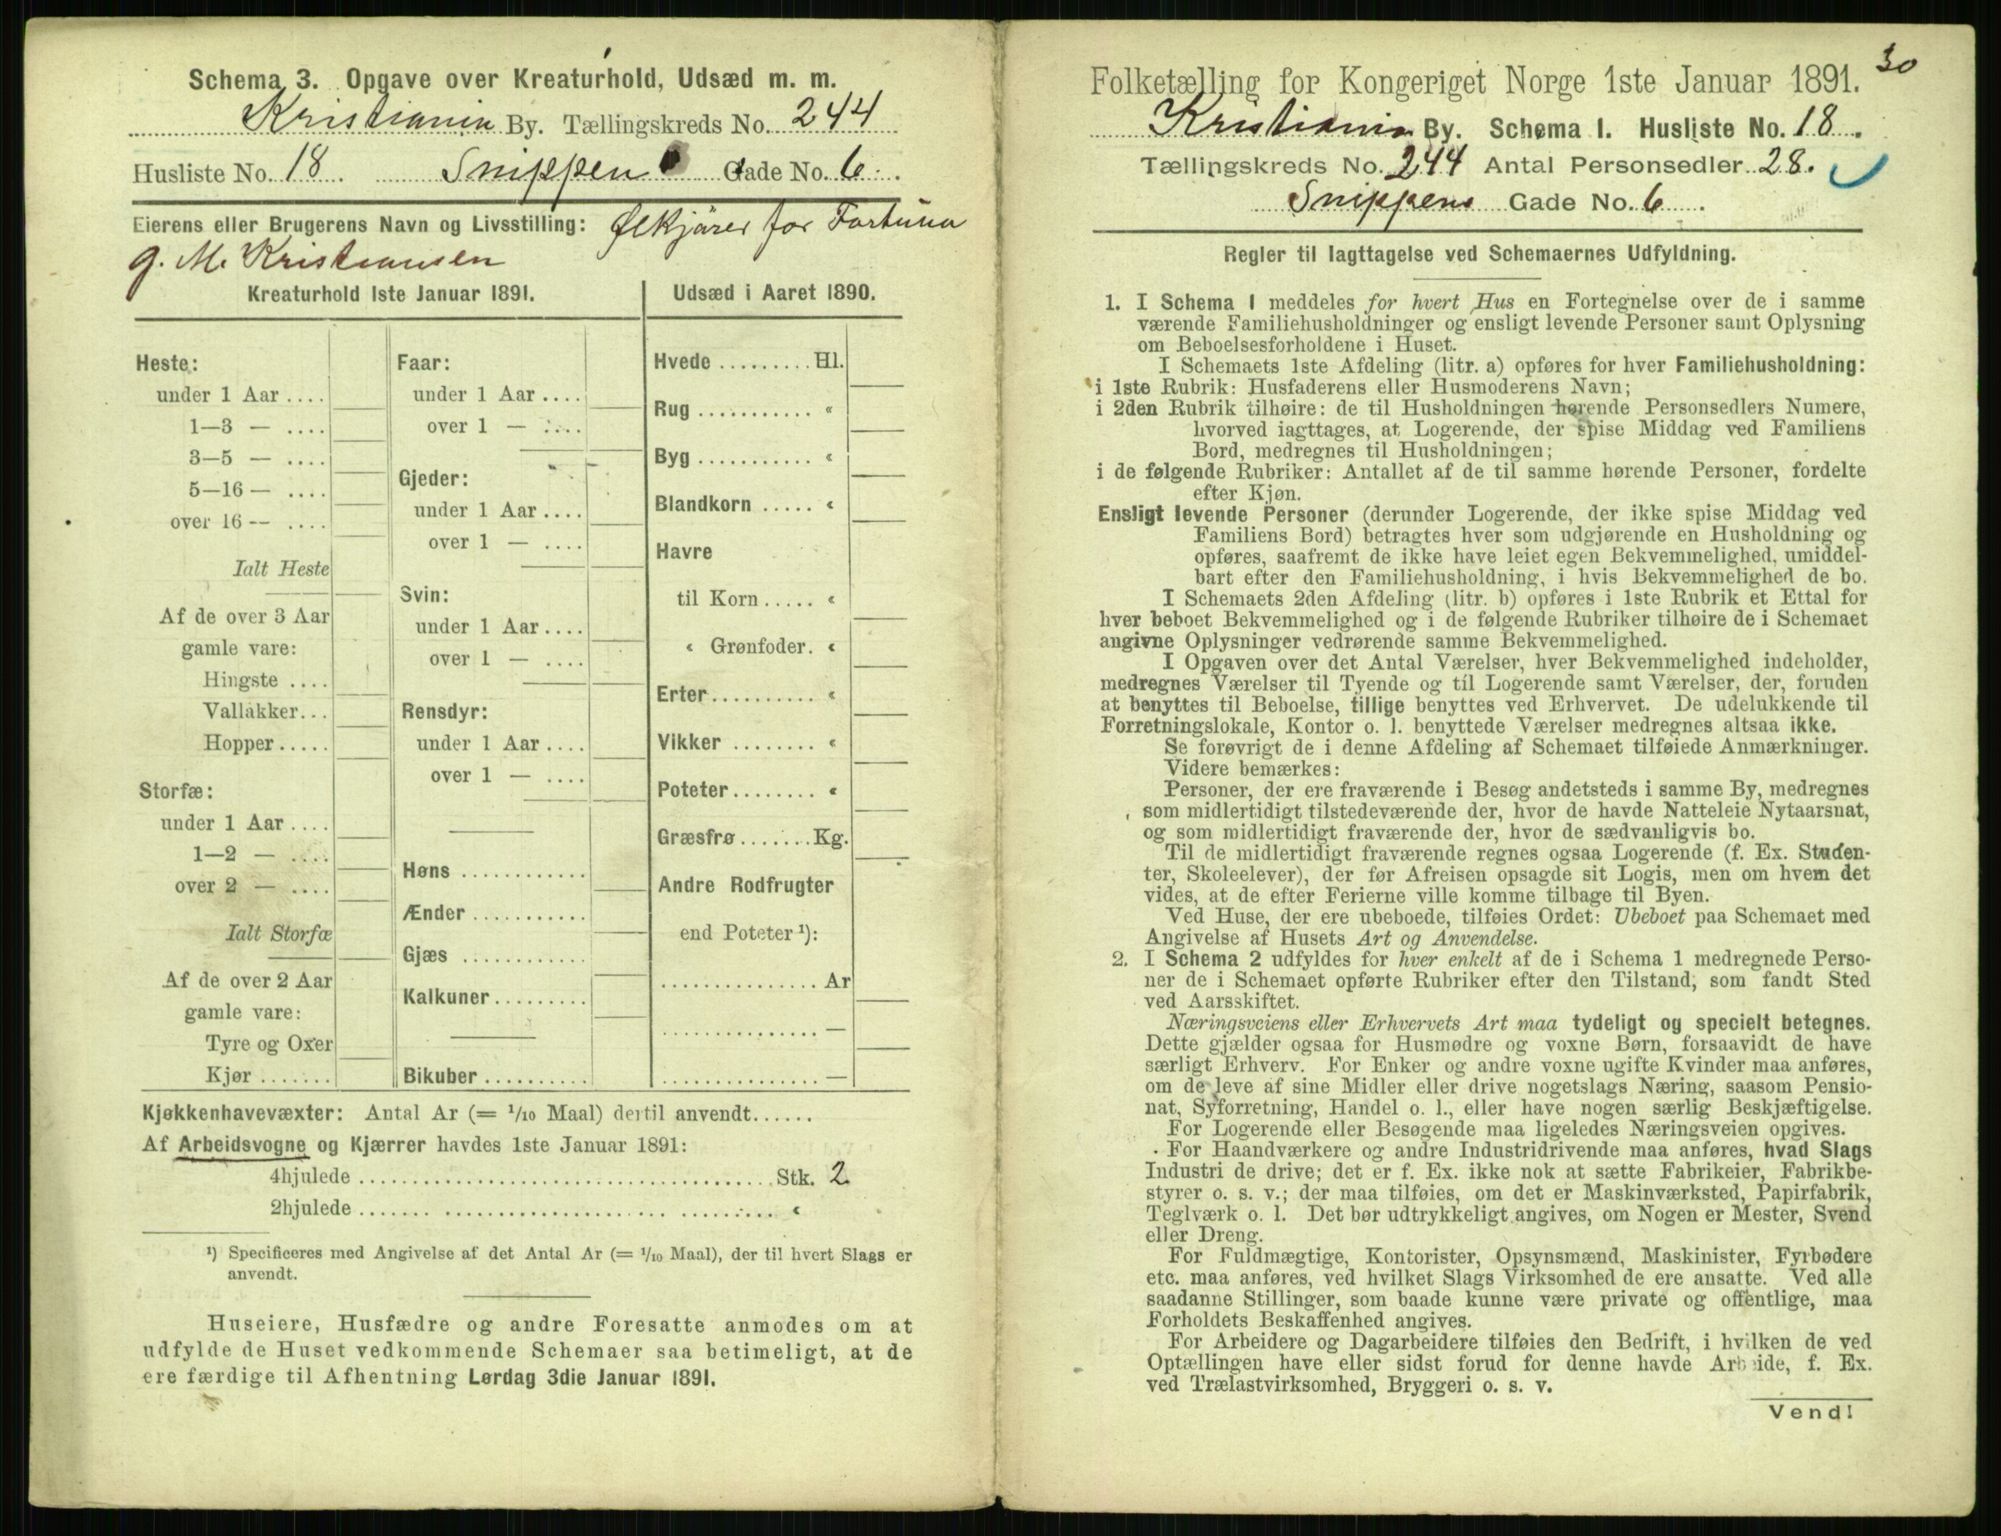 Schema 3. Opgave over Kreaturhold, Udsæd m. m.
Kristiania By. Tællingskreds No. 244
Husliste No. 18. Snippen Gade No. 6.
Eierens eller Brugerens Navn og Livsstilling: Ølkjører for Fortuna
G. M. Kristiansen
Kreaturhold 1ste Januar 1891.
Heste:
under 1 Aar ....
1—3 — ....
3—5 — ....
5—16 — ....
over 16 — ....
Ialt Heste
Af de over 3 Aar
gamle vare:
Hingste ....
Vallakker...
Hopper.....
Storfæ:
under 1 Aar ....
1—2 — ....
over 2 — ....
Ialt Storfæ
Af de over 2 Aar
gamle vare:
Tyre og Oxer
Kjør .......
Faar:
under 1 Aar ....
over 1 — ....
Gjeder:
under 1 Aar ....
over 1 — ....
Svin:
under 1 Aar ....
over 1 — ....
Rensdyr:
under 1 Aar ....
over 1 — ....
Høns ............
Ænder ...........
Gjæs ............
Kalkuner.........
Bikuber..........
Udsæd i Aaret 1890.
Hvede ......... Hl.
Rug ........... «
Byg ........... «
Blandkorn ..... «
Havre
til Korn ..... «
« Grønfoder. «
Erter.......... «
Vikker ........ «
Poteter........ «
Græsfrø ....... Kg.
Andre Rodfrugter
end Poteter ¹):
............... Ar
............... —
............... —
Kjøkkenhavevæxter: Antal Ar (= 1/10 Maal) dertil anvendt......
Af Arbeidsvogne og Kjærrer havdes 1ste Januar 1891:
4hjulede ........................................ Stk. 2
2hjulede ........................................ «
¹) Specificeres med Angivelse af det Antal Ar (= 1/10 Maal), der til hvert Slags er
anvendt.
Huseiere, Husfædre og andre Foresatte anmodes om at
udfylde de Huset vedkommende Schemaer saa betimeligt, at de
ere færdige til Afhentning Lørdag 3die Januar 1891.
30
Folketælling for Kongeriget Norge 1ste Januar 1891.
Kristiania By. Schema 1. Husliste No. 18.
Tællingskreds No. 244 Antal Personsedler 28.
Snippens Gade No. 6.
Regler til Iagttagelse ved Schemaernes Udfyldning.
1. I Schema 1 meddeles for hvert Hus en Fortegnelse over de i samme
værende Familiehusholdninger og ensligt levende Personer samt Oplysning
om Beboelsesforholdene i Huset.
I Schemaets 1ste Afdeling (litr. a) opføres for hver Familiehusholdning:
i 1ste Rubrik: Husfaderens eller Husmoderens Navn;
i 2den Rubrik tilhøire: de til Husholdningen hørende Personsedlers Numere,
hvorved iagttages, at Logerende, der spise Middag ved Familiens
Bord, medregnes til Husholdningen;
i de følgende Rubriker: Antallet af de til samme hørende Personer, fordelte
efter Kjøn.
Ensligt levende Personer (derunder Logerende, der ikke spise Middag ved
Familiens Bord) betragtes hver som udgjørende en Husholdning og
opføres, saafremt de ikke have leiet egen Bekvemmelighed, umiddel-
bart efter den Familiehusholdning, i hvis Bekvemmelighed de bo.
I Schemaets 2den Afdeling (litr. b) opføres i 1ste Rubrik et Ettal for
hver beboet Bekvemmelighed og i de følgende Rubriker tilhøire de i Schemaet
angivne Oplysninger vedrørende samme Bekvemmelighed.
I Opgaven over det Antal Værelser, hver Bekvemmelighed indeholder,
medregnes Værelser til Tyende og til Logerende samt Værelser, der, foruden
at benyttes til Beboelse, tillige benyttes ved Erhvervet. De udelukkende til
Forretningslokale, Kontor o. l. benyttede Værelser medregnes altsaa ikke.
Se forøvrigt de i denne Afdeling af Schemaet tilføiede Anmærkninger.
Videre bemærkes:
Personer, der ere fraværende i Besøg andetsteds i samme By, medregnes
som midlertidigt tilstedeværende der, hvor de havde Natteleie Nytaarsnat,
og som midlertidigt fraværende der, hvor de sædvanligvis bo.
Til de midlertidigt fraværende regnes ogsaa Logerende (f. Ex. Studen-
ter, Skoleelever), der før Afreisen opsagde sit Logis, men om hvem det
vides, at de efter Ferierne ville komme tilbage til Byen.
Ved Huse, der ere ubeboede, tilføies Ordet: Ubeboet paa Schemaet med
Angivelse af Husets Art og Anvendelse.
2. I Schema 2 udfyldes for hver enkelt af de i Schema 1 medregnede Perso-
ner de i Schemaet opførte Rubriker efter den Tilstand, som fandt Sted
ved Aarsskiftet.
Næringsveiens eller Erhvervets Art maa tydeligt og specielt betegnes.
Dette gjælder ogsaa for Husmødre og voxne Børn, forsaavidt de have
særligt Erhverv. For Enker og andre voxne ugifte Kvinder maa anføres,
om de leve af sine Midler eller drive nogetslags Næring, saasom Pensio-
nat, Syforretning, Handel o. l., eller have nogen særlig Beskjæftigelse.
For Logerende eller Besøgende maa ligeledes Næringsveien opgives.
For Haandværkere og andre Industridrivende maa anføres, hvad Slags
Industri de drive; det er f. Ex. ikke nok at sætte Fabrikeier, Fabrikbe-
styrer o. s. v.; der maa tilføies, om det er Maskinværksted, Papirfabrik,
Teglværk o. l. Det bør udtrykkeligt angives, om Nogen er Mester, Svend
eller Dreng.
For Fuldmægtige, Kontorister, Opsynsmænd, Maskinister, Fyrbødere
etc. maa anføres, ved hvilket Slags Virksomhed de ere ansatte. Ved alle
saadanne Stillinger, som baade kunne være private og offentlige, maa
Forholdets Beskaffenhed angives.
For Arbeidere og Dagarbeidere tilføies den Bedrift, i hvilken de ved
Optællingen have eller sidst forud for denne havde Arbeide, f. Ex.
ved Trælastvirksomhed, Bryggeri o. s. v.
Vend!